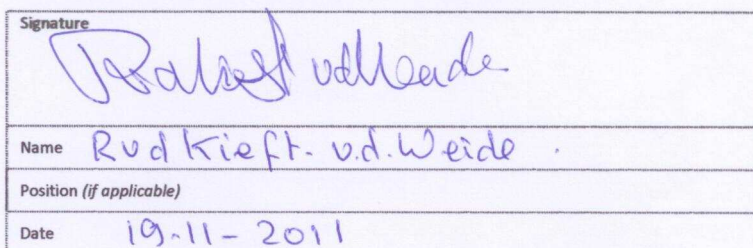 Signature
vdWeide
Name R v d Kieft. v.d. Weide .
Position (if applicable)
Date 19-11-2011